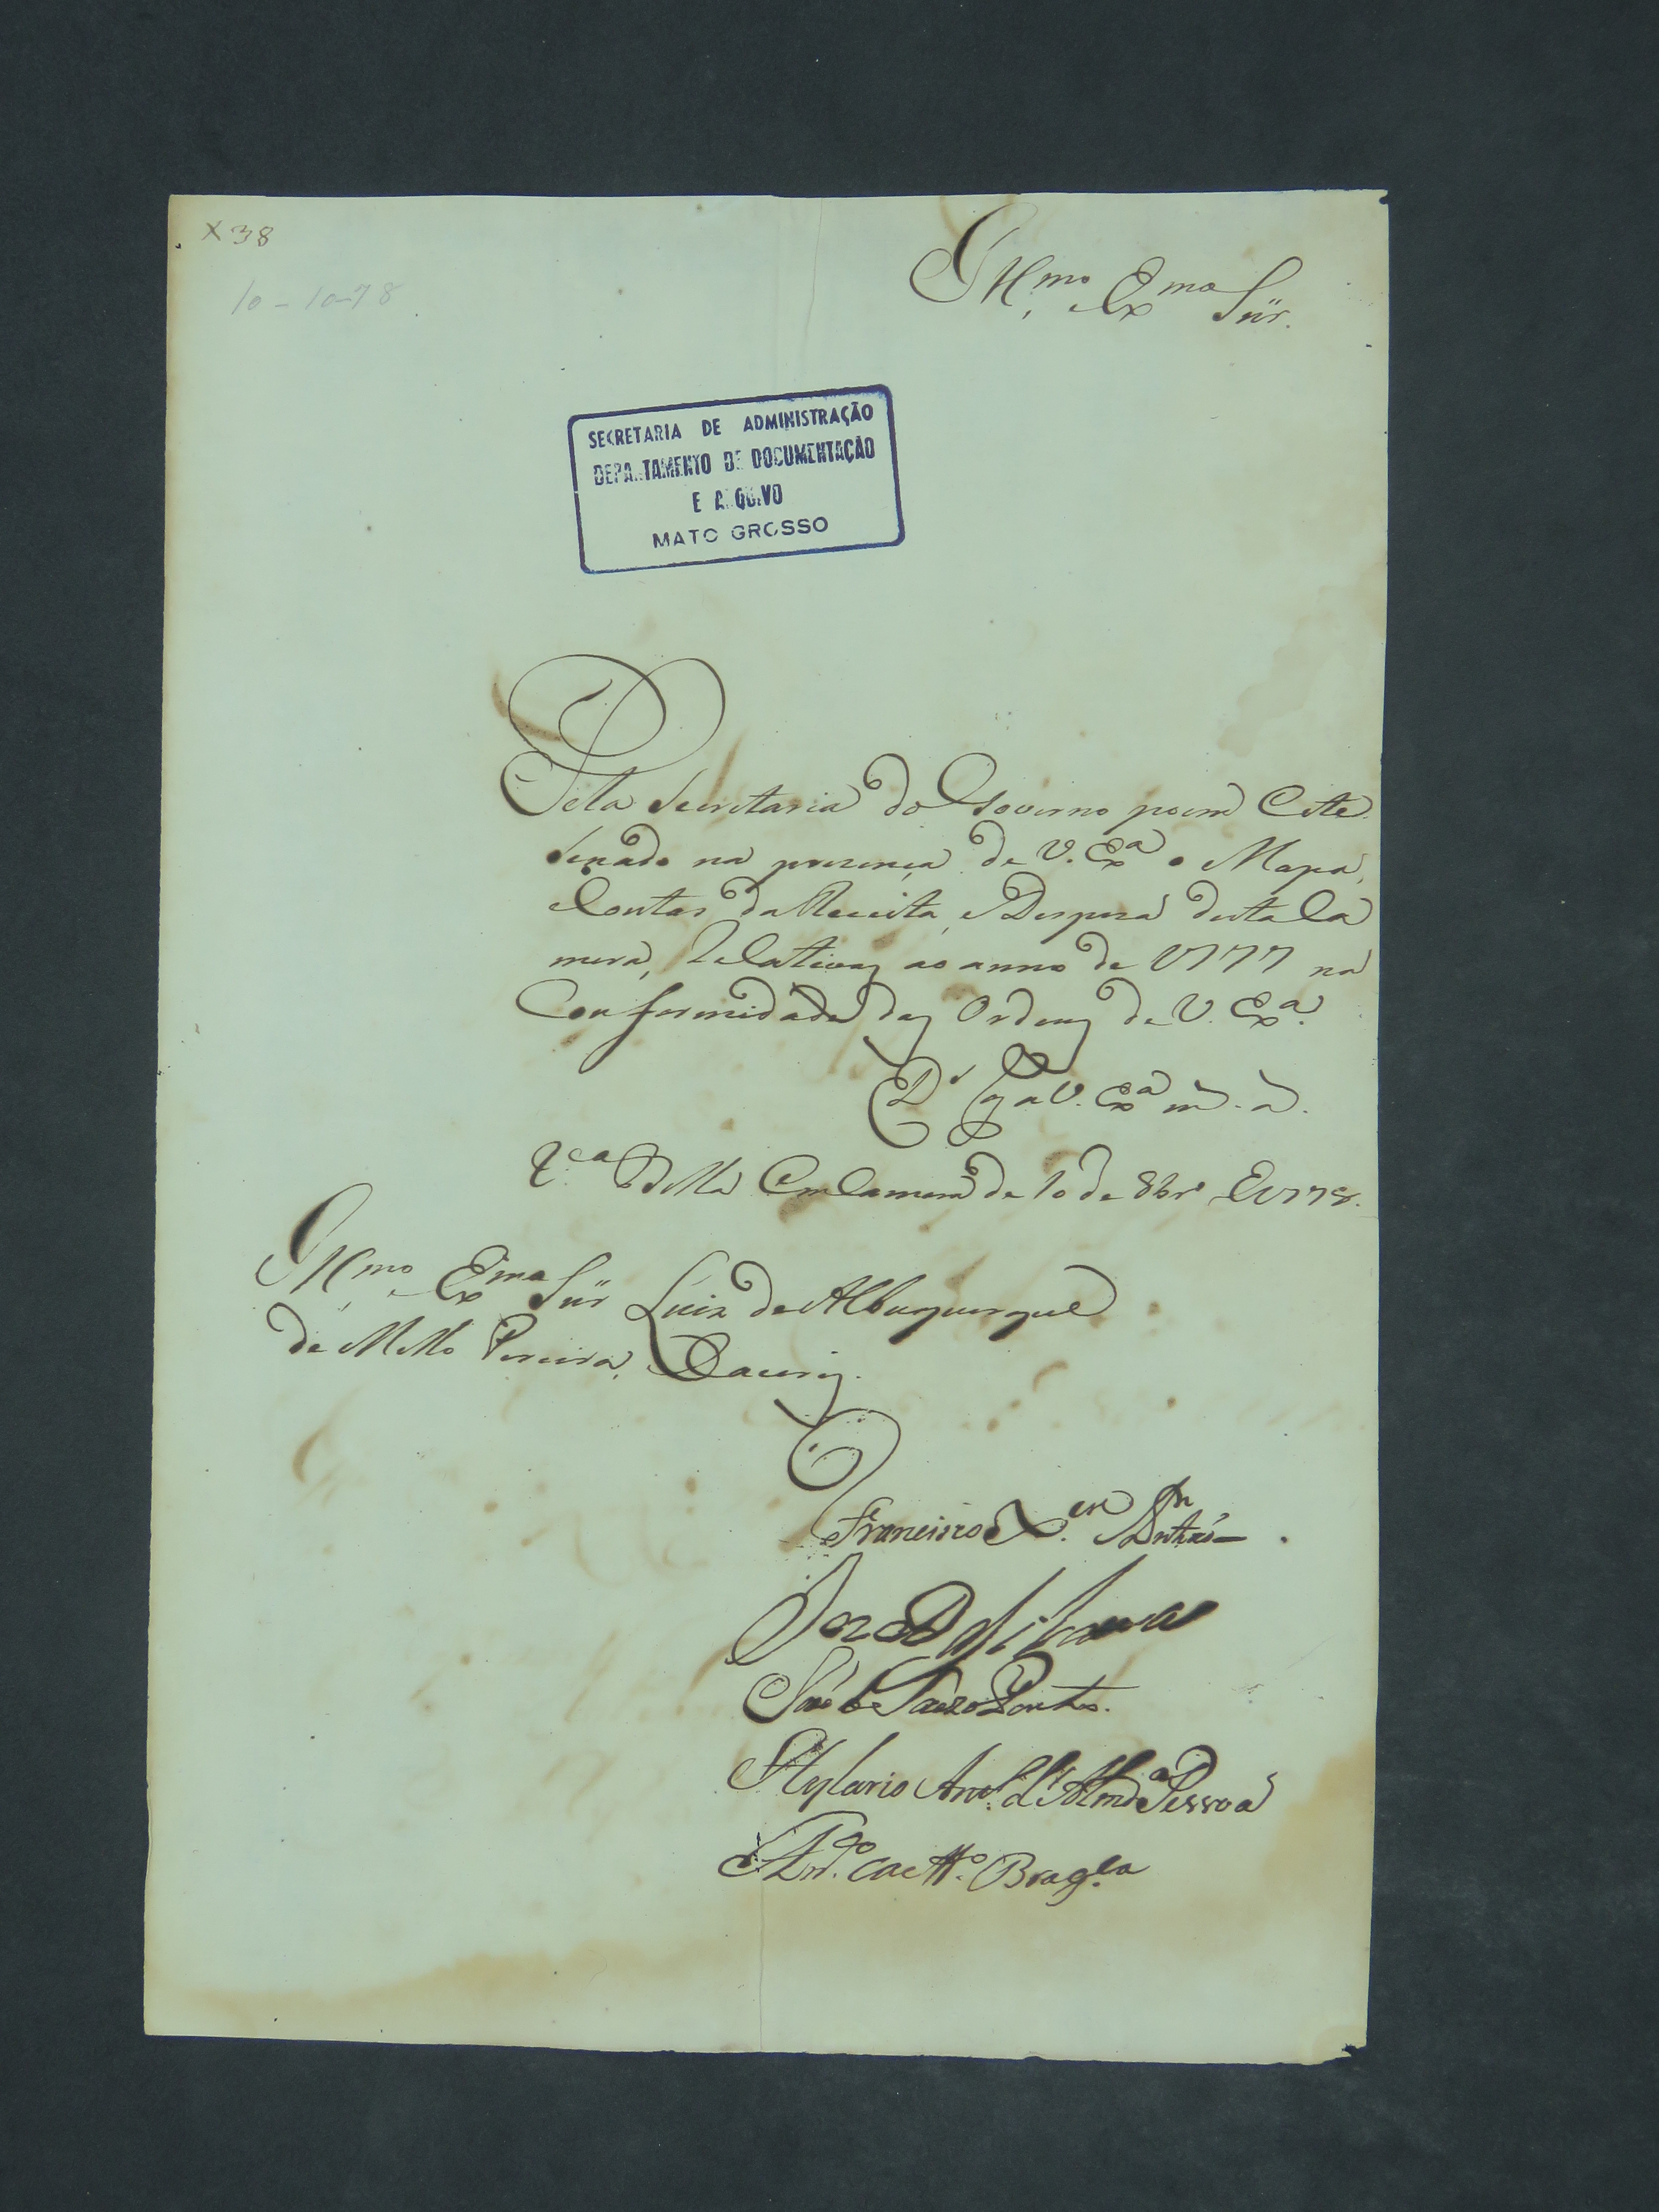 X 38
10-10-78
Illmo. Exmo Snr.
SECRETARIA DE ADMINISTRAÇÃO
DEPARTAMENTO DE DOCUMENTAÇÃO
E ARQUIVO
MATO GROSSO
Pela Secretaria do Governo poem Este
Senado na prezença de V. Exa o Mapa,
Contas da Receita, e Despeza desta Ca
mera, Relativas ao anno de 1777 na
Conformidade das Ordens de V. Exa.
Ds. Gde a V. Exa ms. as.
Va. Bella Em Camera de 10 de 8bro. de 1778.
Illmo. Exmo Snr Luiz de Albuquerque
de Mello Pereira, e Caceres.
Francisco X.er
Joze da Silva
Pontes.
Hylario de Almda. Pessoa
Anto. Caetto. Brag.ca